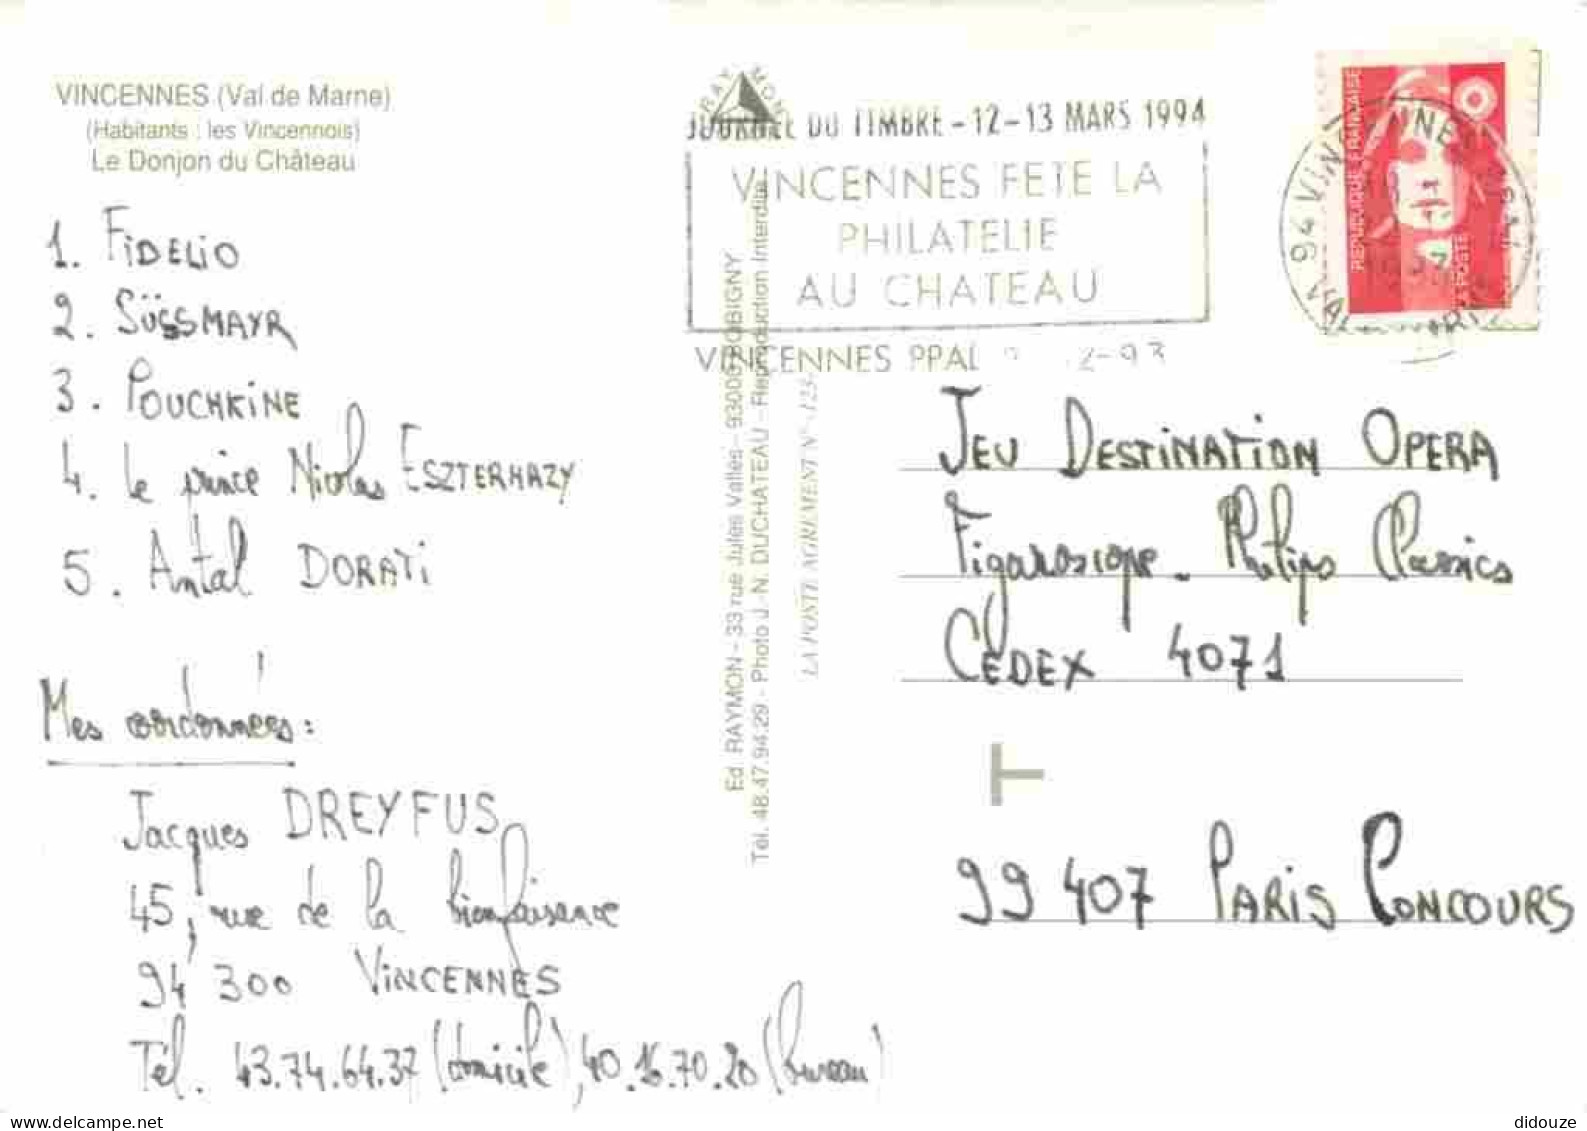 VINCENNES (Val de Marne)
(Habitants : les Vincennois)
Le Donjon du Château
1. FIDELIO
2. SÜSSMAYR
3. POUCHKINE
4. Le prince Nicolas ESZTERHAZY
5. Antal DORATI
Mes coordonnées :
Jacques DREYFUS
45, rue de la bienfaisance
94 300 VINCENNES
Tél. 43.74.64.37 (domicile), 40.16.70.20 (bureau)
RAYMON
Ed. RAYMON - 33 rue Jules Vallès - 93000 BOBIGNY
Tél. 48.47.94.29 - Photo J.-N. DUCHATEAU - Reproduction Interdite
LA POSTE AGREMENT N°
JOURNEE DU TIMBRE - 12-13 MARS 1994
VINCENNES FETE LA
PHILATELIE
AU CHATEAU
VINCENNES PPAL
94 VINCENNES
VAL DE MARNE
REPUBLIQUE FRANÇAISE
LA POSTE
JEU DESTINATION OPERA
Figaroscope - Philips Classics
CEDEX 4071
T
99 407 PARIS CONCOURS
didouze